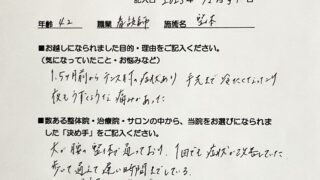 記入日 2023年12月
年齢 42 職業 看護師 施術名 整体
■お越しになられました目的・理由をご記入ください。
(気になっていたこと・お悩みなど)
1.5ヶ月前から テニス肘の症状あり 手先まで冷たくなったり
夜もうずくような痛みがあった
■数ある整体院・治療院・サロンの中から、当院をお選びになられまし
た「決め手」をご記入ください。
夫が腰の整体で通っており、1回でも症状が改善していた
歩って通えて遅い時間までしている